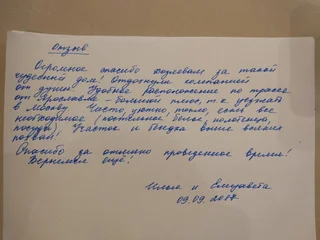 Отзыв
Огромное спасибо хозяевам за такой
чудесный дом! Отдохнули компанией
от души. Удобное расположение по трассе
от Ярославля - большой плюс, т.к. уезжать
в Москву. Чисто, уютно, тепло, есть все
необходимое (постельное белье, полотенца,
посуда). Участок и беседка выше всяких
похвал!
Спасибо за отлично проведенное время!
Вернемся ещё!
Илья и Елизавета
09.09.2017